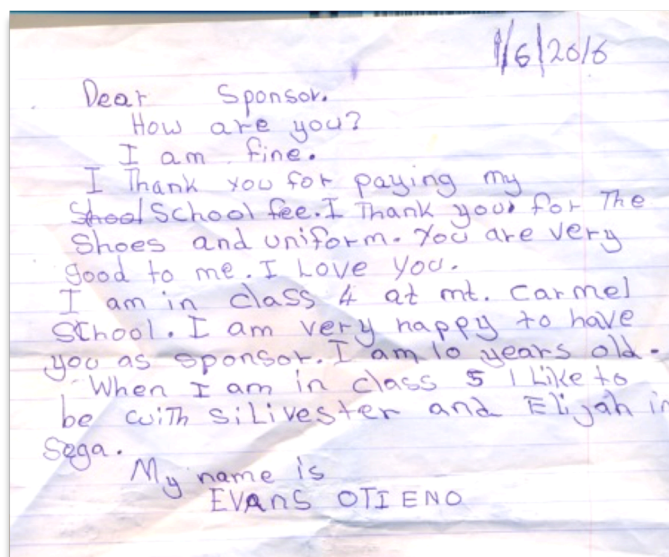 1/6/2016
Dear Sponsor.
How are you?
I am fine.
I Thank you for paying my
School fee. I Thank you for The
Shoes and uniform. You are very
good to me. I Love you.
I am in class 4 at mt. carmel
School. I am very happy to have
you as sponsor. I am 10 years old.
When I am in class 5 I Like to
be with SiLivester and ELijah in
Sega.
My name is
EVANS OTIENO